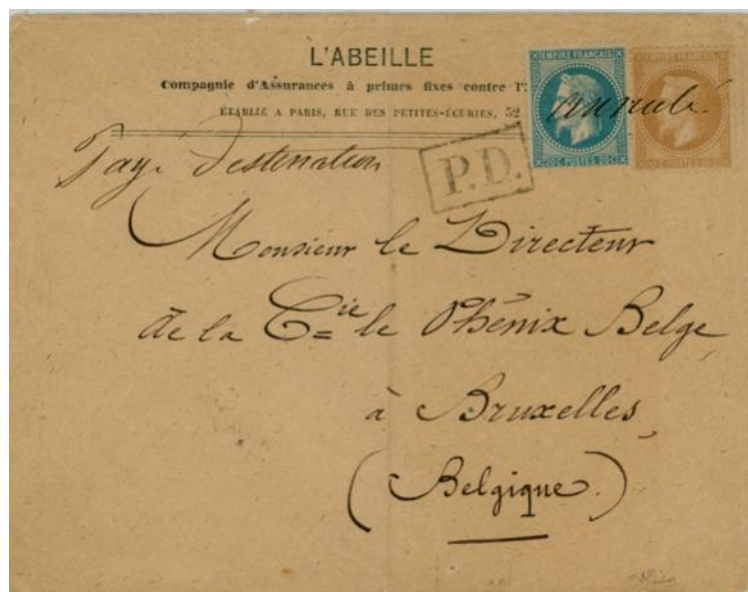 L'ABEILLE
Compagnie d'Assurances à primes fixes contre l'
ÉTABLIE A PARIS, RUE DES PETITES-ÉCURIES, 52
EMPIRE FRANÇAIS
EMPIRE FRANÇAIS
annulé
20C POSTES 20C
Pay. Destination
P.D.
Monsieur le Directeur
de la Cie le Phénix Belge
à Bruxelles
(Belgique.)